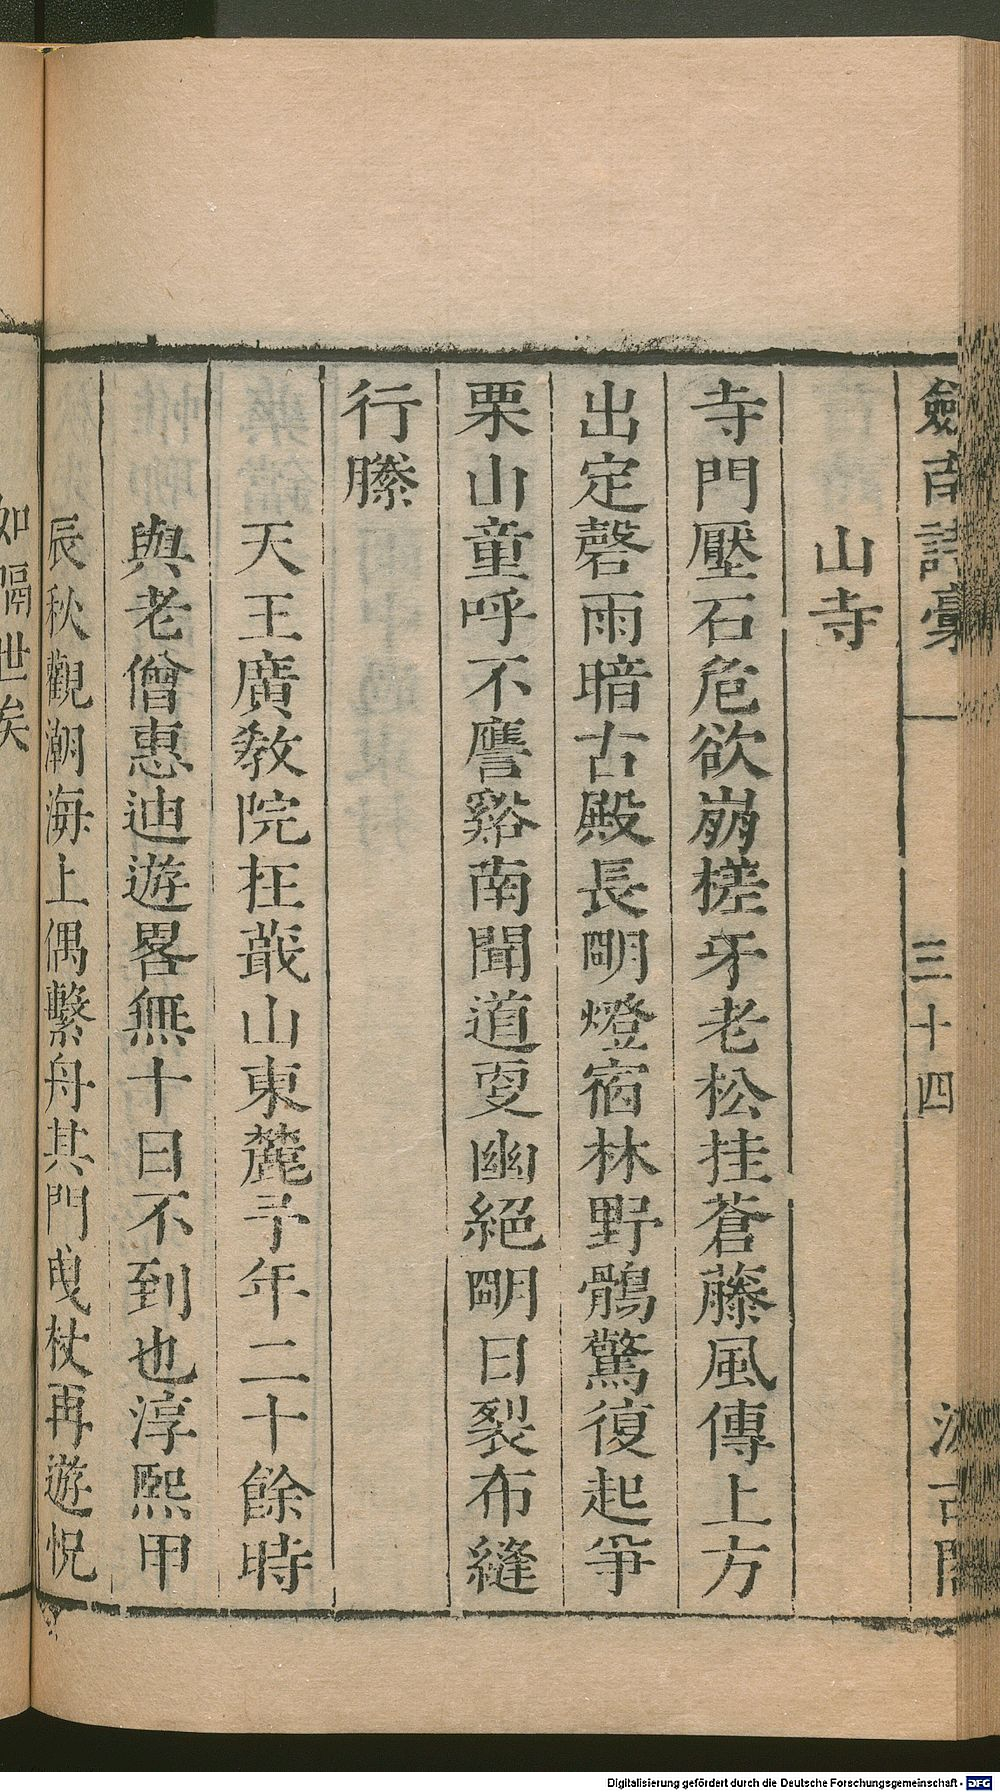 劒南詩藁 一 三十四 汲古閣
山寺
寺門壓石危欲崩槎牙老松挂蒼藤風傳上方
出定磬雨暗古殿長朙燈宿林野鶻驚復起爭
栗山童呼不譍谿南聞道㪅幽絕朙日裂布縫
行縢
天王廣敎院在蕺山東麓予年二十餘時
與老僧惠迪遊畧無十日不到也淳熙甲
辰秋觀潮海上偶繫舟其門曳杖再遊怳
如隔世矣
Digitalisierung gefördert durch die Deutsche Forschungsgemeinschaft - DFG